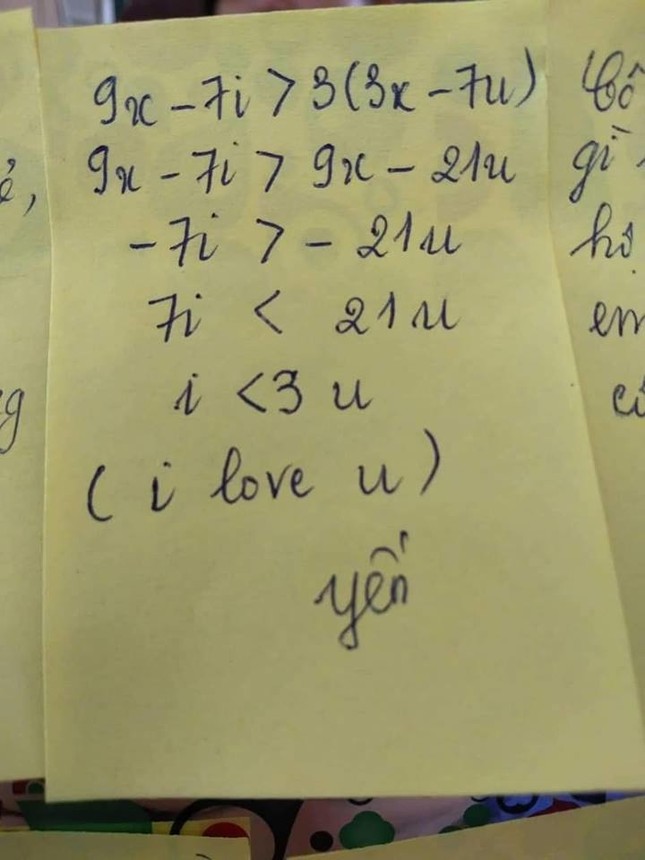 9x - 7i > 3(3x - 7u)
9x - 7i > 9x - 21u
-7i > - 21u
7i < 21u
i <3 u
(i love u)
yến
gì
em